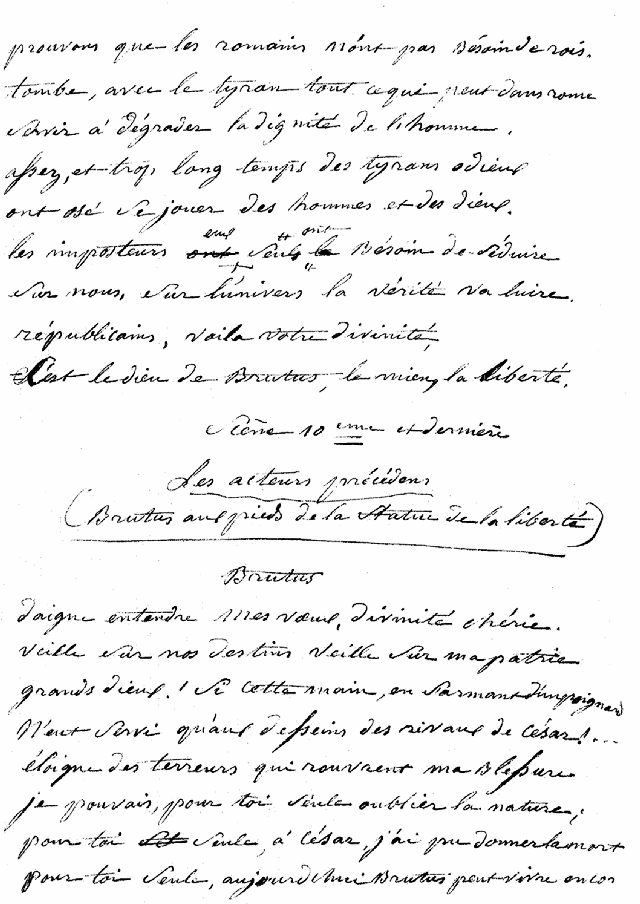 prouvons que les romains n'ont pas bésoin de rois.
tombe, avec le tyran tout ce qui peut dans rome
servir à dégrader la dignité de l'homme.
assez, et trop long temps des tyrans odieux
ont osé se jouer des hommes et des dieux.
eux ont
les imposteurs ont seuls le bésoin de séduire
sur nous, sur l'univers la vérité va luire.
républicains, voila votre divinité,
C'est le dieu de Brutus, le mien, la liberté.
Scêne 10 eme et derniere
Les acteurs précédens
(Brutus aux pieds de la Statue de la liberté)
Brutus
daigne entendre mes vœux, divinité chérie.
veille sur nos destins veille sur ma patrie
grands dieux! si cette main, en s'armant d'un poignard
N'eut servi qu'aux desseins des rivaux de César!...
éloigne des terreurs qui rouvrent ma blessure
je pouvais, pour toi seule oublier la nature;
pour toi seule, à César, j'ai pu donner la mort
pour toi seule, aujourd'hui Brutus peut vivre encor